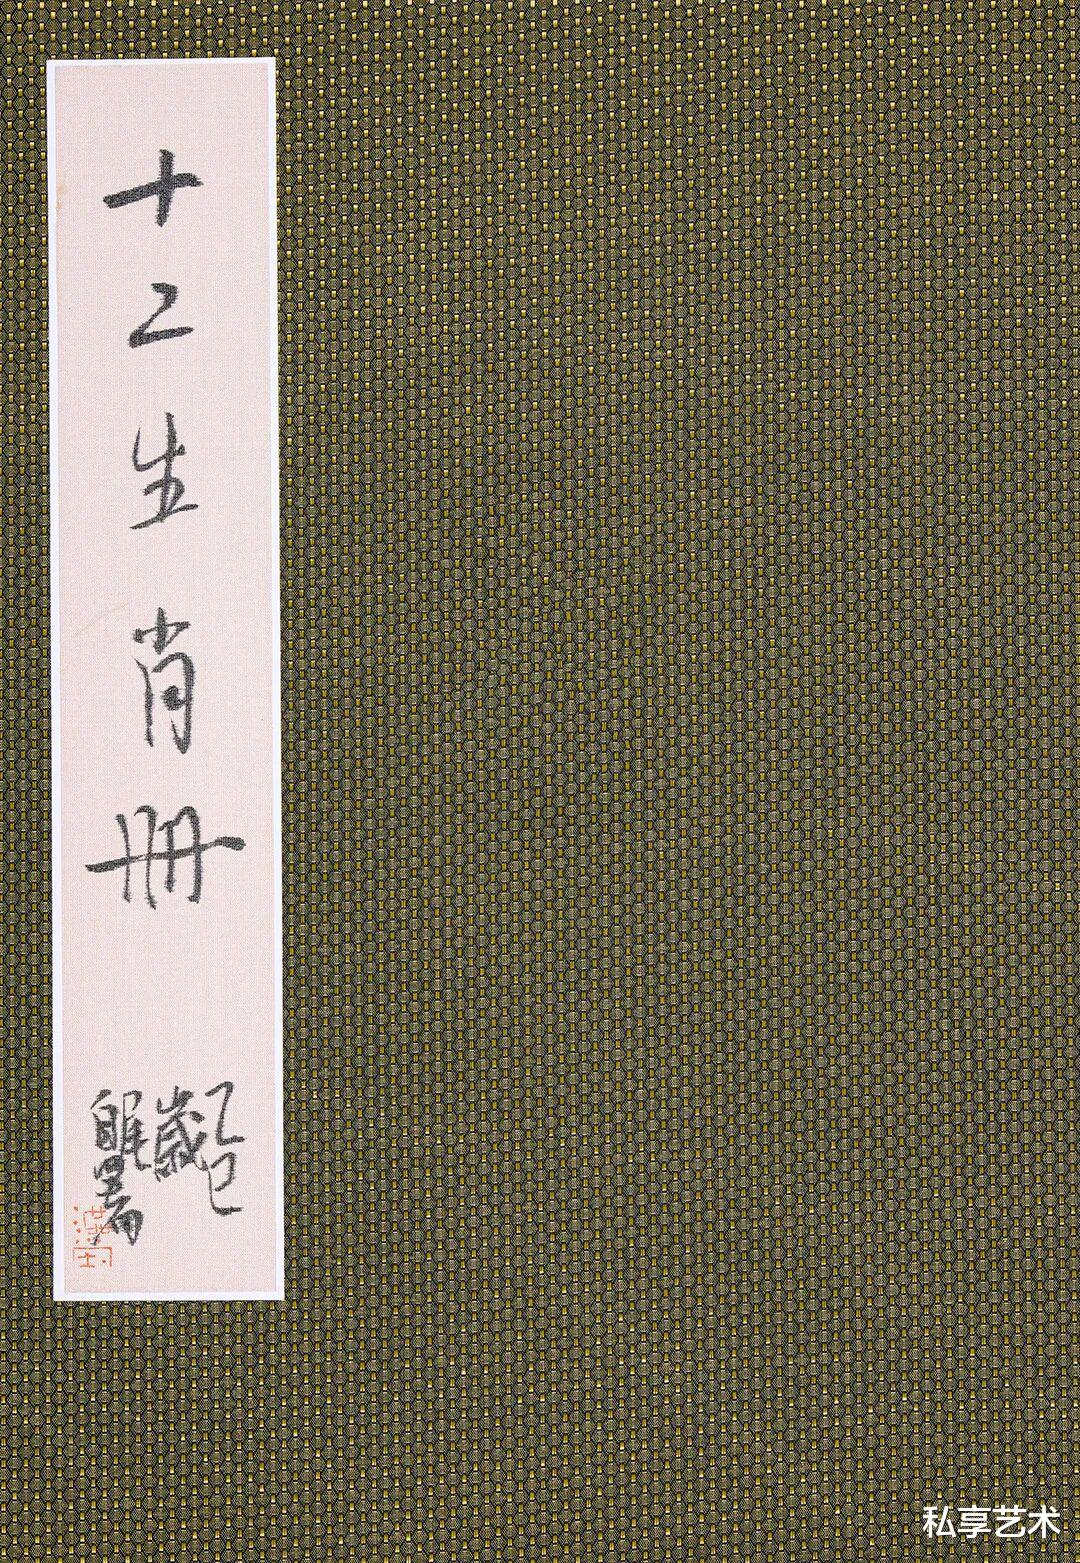 十二生肖册
乙巳
歲
私享艺术